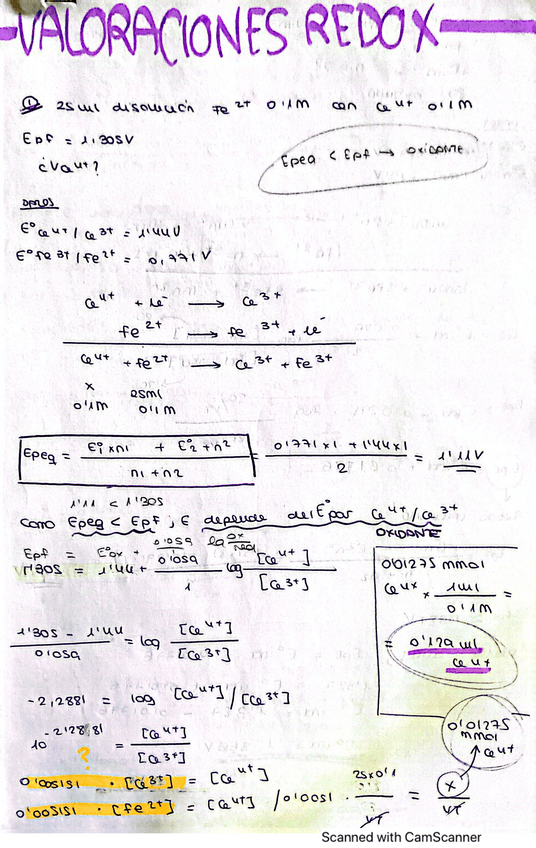 VALORACIONES REDOX
① 25ml disolución Fe²⁺ 0'1M con Ce⁴⁺ 0'1M
Epf = 1'305V
Epeq < Epf → OXIDANTE
¿VCe⁴⁺?
DATOS
E° Ce⁴⁺/Ce³⁺ = 1'44V
E° fe³⁺/fe²⁺ = 0,771V
Ce⁴⁺ + 1e⁻ → Ce³⁺
fe²⁺ → fe³⁺ + 1e⁻
Ce⁴⁺ + fe²⁺ → Ce³⁺ + Fe³⁺
x 25ml
0'1M 0'1M
Epeq = E°₁ x n1 + E°₂ + n² / n1 + n2 = 0'771x1 + 1'44x1 / 2 = 1'11V
1'11 < 1'305
Como Epeq < Epf, E depende del E° par Ce⁴⁺/Ce³⁺
OXIDANTE
Epf = E°ox + 0'059 log ox/red
1'305 = 1'44 + 0'059 / 1 log [Ce⁴⁺] / [Ce³⁺]
1'305 - 1'44 / 0'059 = log [Ce⁴⁺] / [Ce³⁺]
-2,2881 = log [Ce⁴⁺] / [Ce³⁺]
10 -2'2881 = [Ce⁴⁺] / [Ce³⁺]
?
0'005151 · [Ce³⁺] = [Ce⁴⁺]
0'005151 · [fe²⁺] = [Ce⁴⁺] / 0'0051 · 25x0'1 / VT = x / VT
0'01275 mmol
Ce⁴⁺ x 1ml / 0'1M =
= 0'129 ml
Ce⁴⁺
0'01275
mmol
Ce⁴⁺
Scanned with CamScanner